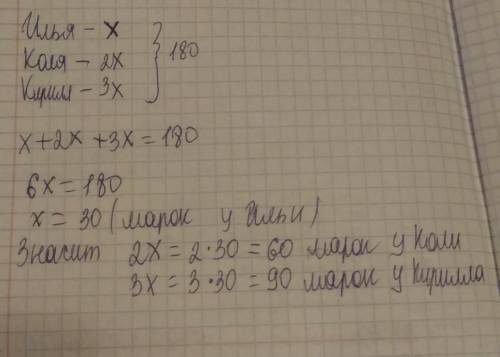 Илья – x
Коля – 2x } 180
Кирил – 3x
x + 2x + 3x = 180
6x = 180
x = 30 (марок у Ильи)
Значит 2x = 2·30 = 60 марок у Коли
3x = 3·30 = 90 марок у Кирилла